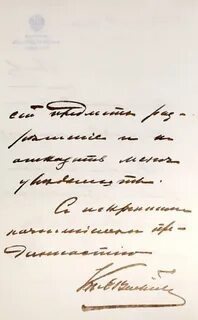 сей предметъ раз-
рѣшеніе и не
отказать меня
увѣдомить.
Съ искреннимъ
почтеніемъ и пре-
данностію